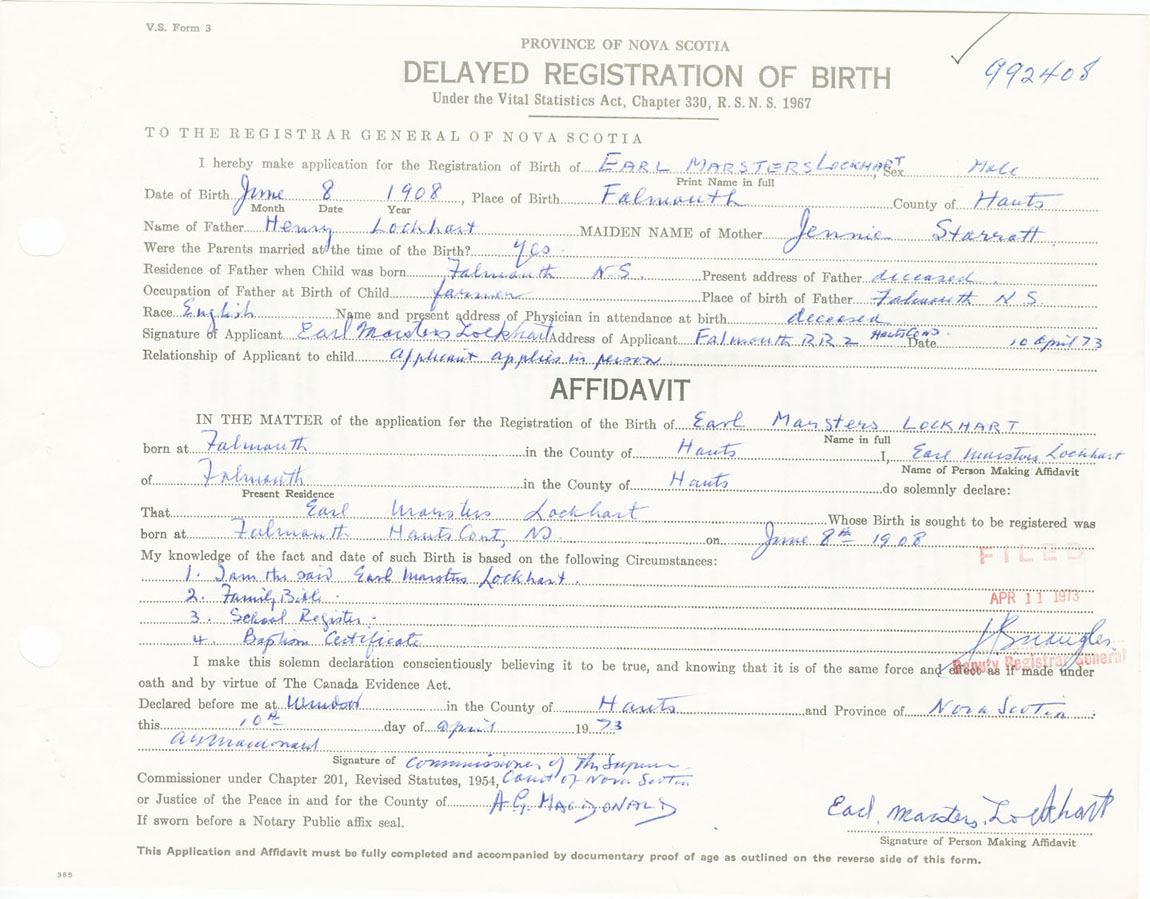 V.S. Form 3
PROVINCE OF NOVA SCOTIA
992408
DELAYED REGISTRATION OF BIRTH
Under the Vital Statistics Act, Chapter 330, R.S.N.S. 1967
TO THE REGISTRAR GENERAL OF NOVA SCOTIA
I hereby make application for the Registration of Birth of EARL MARSTERS LOCKHART, Sex Male
Print Name in full
Date of Birth June 8 1908, Place of Birth Falmouth County of Hants
Month Date Year
Name of Father Henry Lockhart MAIDEN NAME of Mother Jennie Starratt
Were the Parents married at the time of the Birth? yes.
Residence of Father when Child was born Falmouth N.S. Present address of Father deceased.
Occupation of Father at Birth of Child farmer Place of birth of Father Falmouth N S.
Race English Name and present address of Physician in attendance at birth deceased
Signature of Applicant Earl Marsters Lockhart Address of Applicant Falmouth RR 2 Hants Date 10 April 73
Relationship of Applicant to child applicant applies in person
AFFIDAVIT
IN THE MATTER of the application for the Registration of the Birth of Earl Marsters LOCKHART
Name in full
born at Falmouth in the County of Hants I, Earl Marsters Lockhart
Name of Person Making Affidavit
of Falmouth in the County of Hants do solemnly declare:
Present Residence
That Earl Marsters Lockhart Whose Birth is sought to be registered was
born at Falmouth Hants NS. on June 8th 1908
My knowledge of the fact and date of such Birth is based on the following Circumstances:
FILED
1. I am the said Earl Marsters Lockhart.
2. Family Bible.
APR 11 1973
3. School Register.
4. Baptism Certificate
Deputy Registrar General
I make this solemn declaration conscientiously believing it to be true, and knowing that it is of the same force and effect as if made under
oath and by virtue of The Canada Evidence Act.
Declared before me at Windsor in the County of Hants and Province of Nova Scotia.
this 10th day of April 1973
Signature of Commissioner of the Supreme
Commissioner under Chapter 201, Revised Statutes, 1954, Court of Nova Scotia
or Justice of the Peace in and for the County of A.G. MACDONALD
If sworn before a Notary Public affix seal.
Earl. Marsters. Lockhart
Signature of Person Making Affidavit
This Application and Affidavit must be fully completed and accompanied by documentary proof of age as outlined on the reverse side of this form.
385